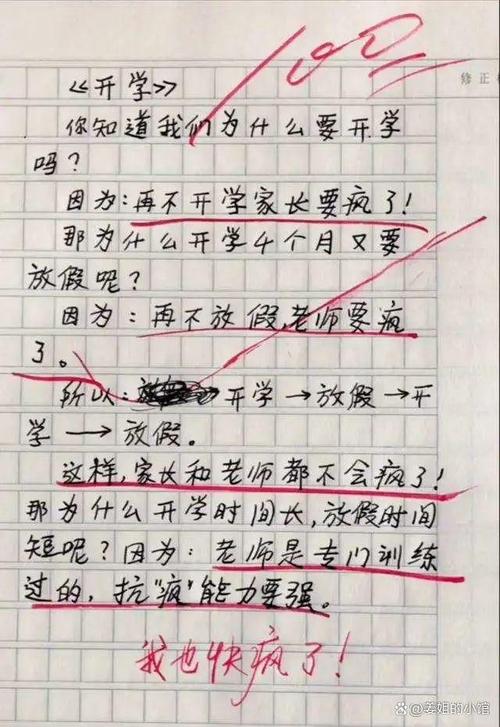 100
修正
《开学》
你知道我们为什么要开学
吗？
因为：再不开学家长要疯了！
那为什么开学4个月又要
放假呢？
因为：再不放假，老师要疯
了。
所以：开学→放假→开
学→放假。
这样，家长和老师都不会疯了！
那为什么开学时间长，放假时间
短呢？因为：老师是专门训练
过的，抗"疯"能力要强。
我也快疯了！
@姜姐的小馆